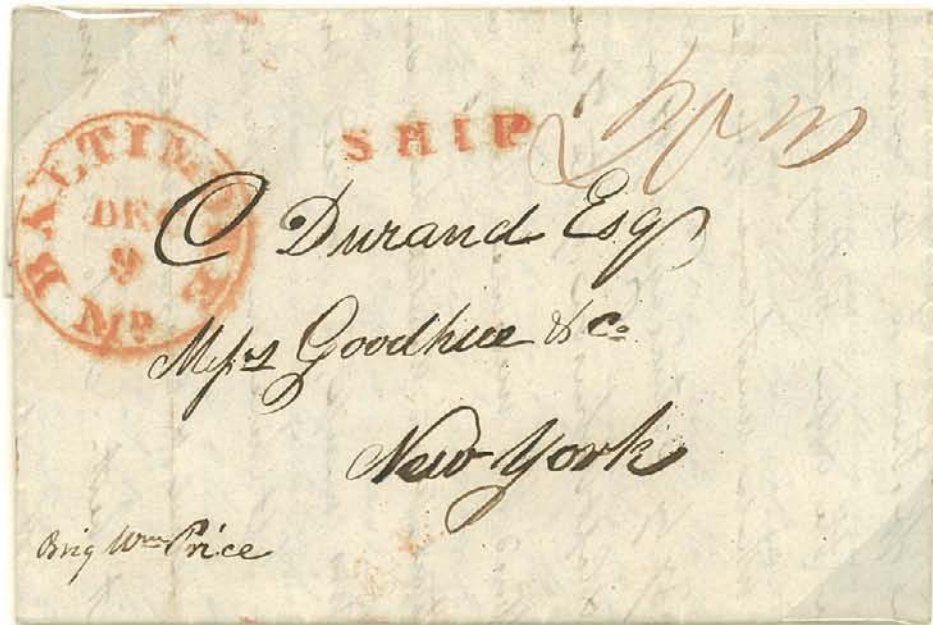 SHIP
BALTIMORE
DEC
9
MD.
C Durand Esqr
Messrs Goodhue & Co.
New York
Brig Wm Price